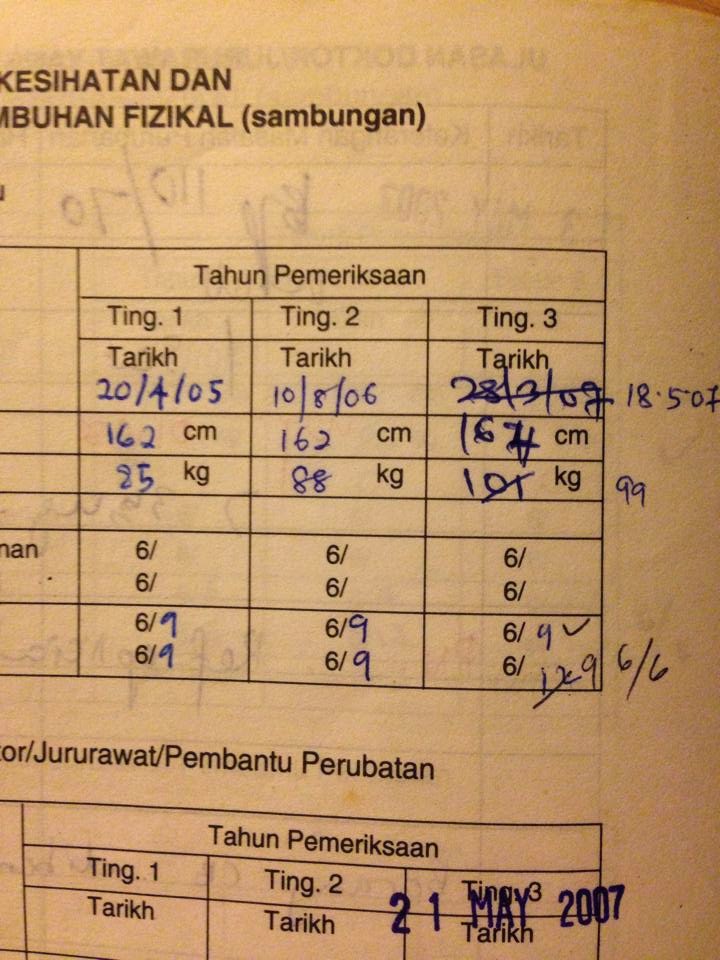 KESIHATAN DAN
MBUHAN FIZIKAL (sambungan)
Tahun Pemeriksaan
Ting. 1 Ting. 2 Ting. 3
Tarikh Tarikh Tarikh
20/4/05 10/8/06 28/3/07 18.5.07
162 cm 162 cm 164 cm
85 kg 88 kg 101 kg 99
nan 6/ 6/ 6/
6/ 6/ 6/
6/9 6/9 6/9
6/9 6/9 6/12 9 6/6
tor/Jururawat/Pembantu Perubatan
Tahun Pemeriksaan
Ting. 1 Ting. 2 Ting. 3
Tarikh Tarikh Tarikh
21 MAY 2007